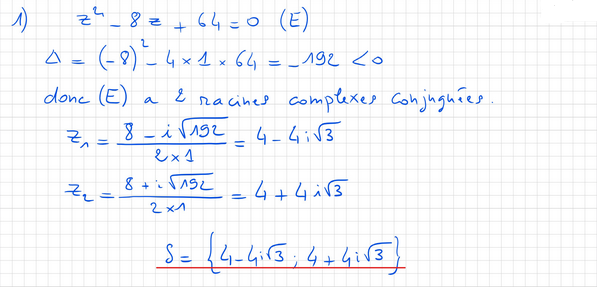 1) z² - 8z + 64 = 0 (E)
Δ = (-8)² - 4 × 1 × 64 = -192 < 0
donc (E) a 2 racines complexes conjuguées.
z₁ = (8 - i√192)/(2×1) = 4 - 4i√3
z₂ = (8 + i√192)/(2×1) = 4 + 4i√3
S = {4-4i√3 ; 4+4i√3}